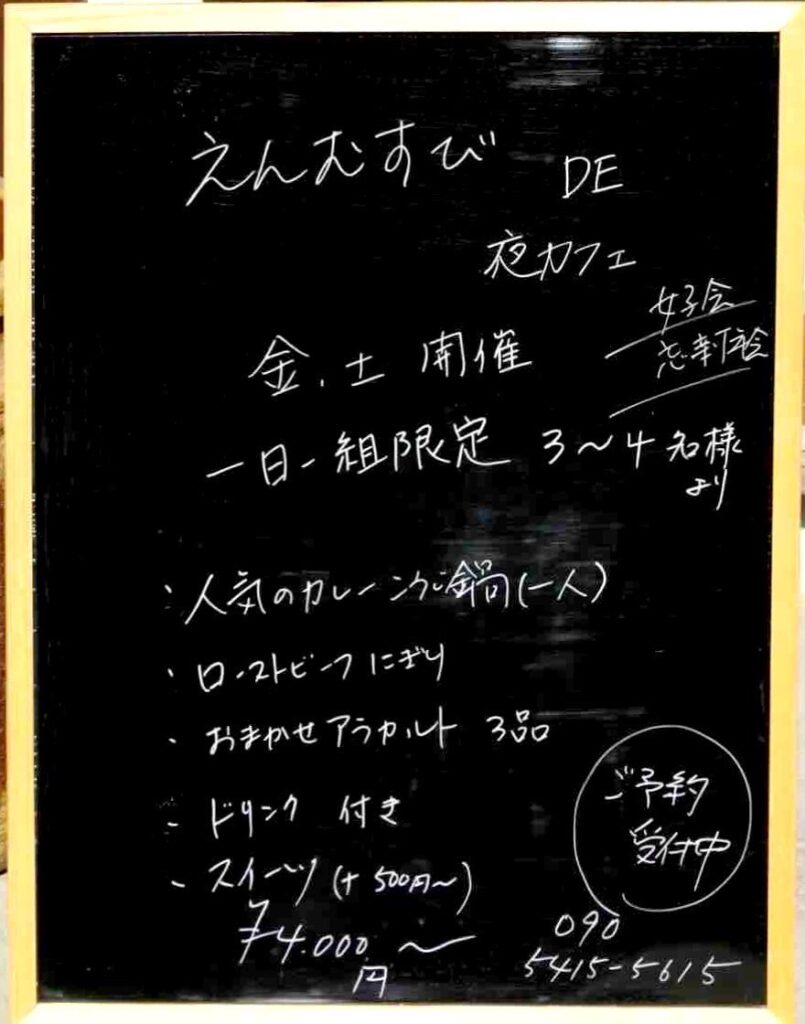 えんむすび DE
夜カフェ
女子会
忘新年会
金、土 開催
一日一組限定 3〜4名様
より
・人気のカレー 鍋(一人)
・ローストビーフにぎり
・おまかせアラカルト 3品
・ドリンク 付き
・スイーツ(+500円〜)
¥4.000〜
円
ご予約
受付中
090
5415-5615